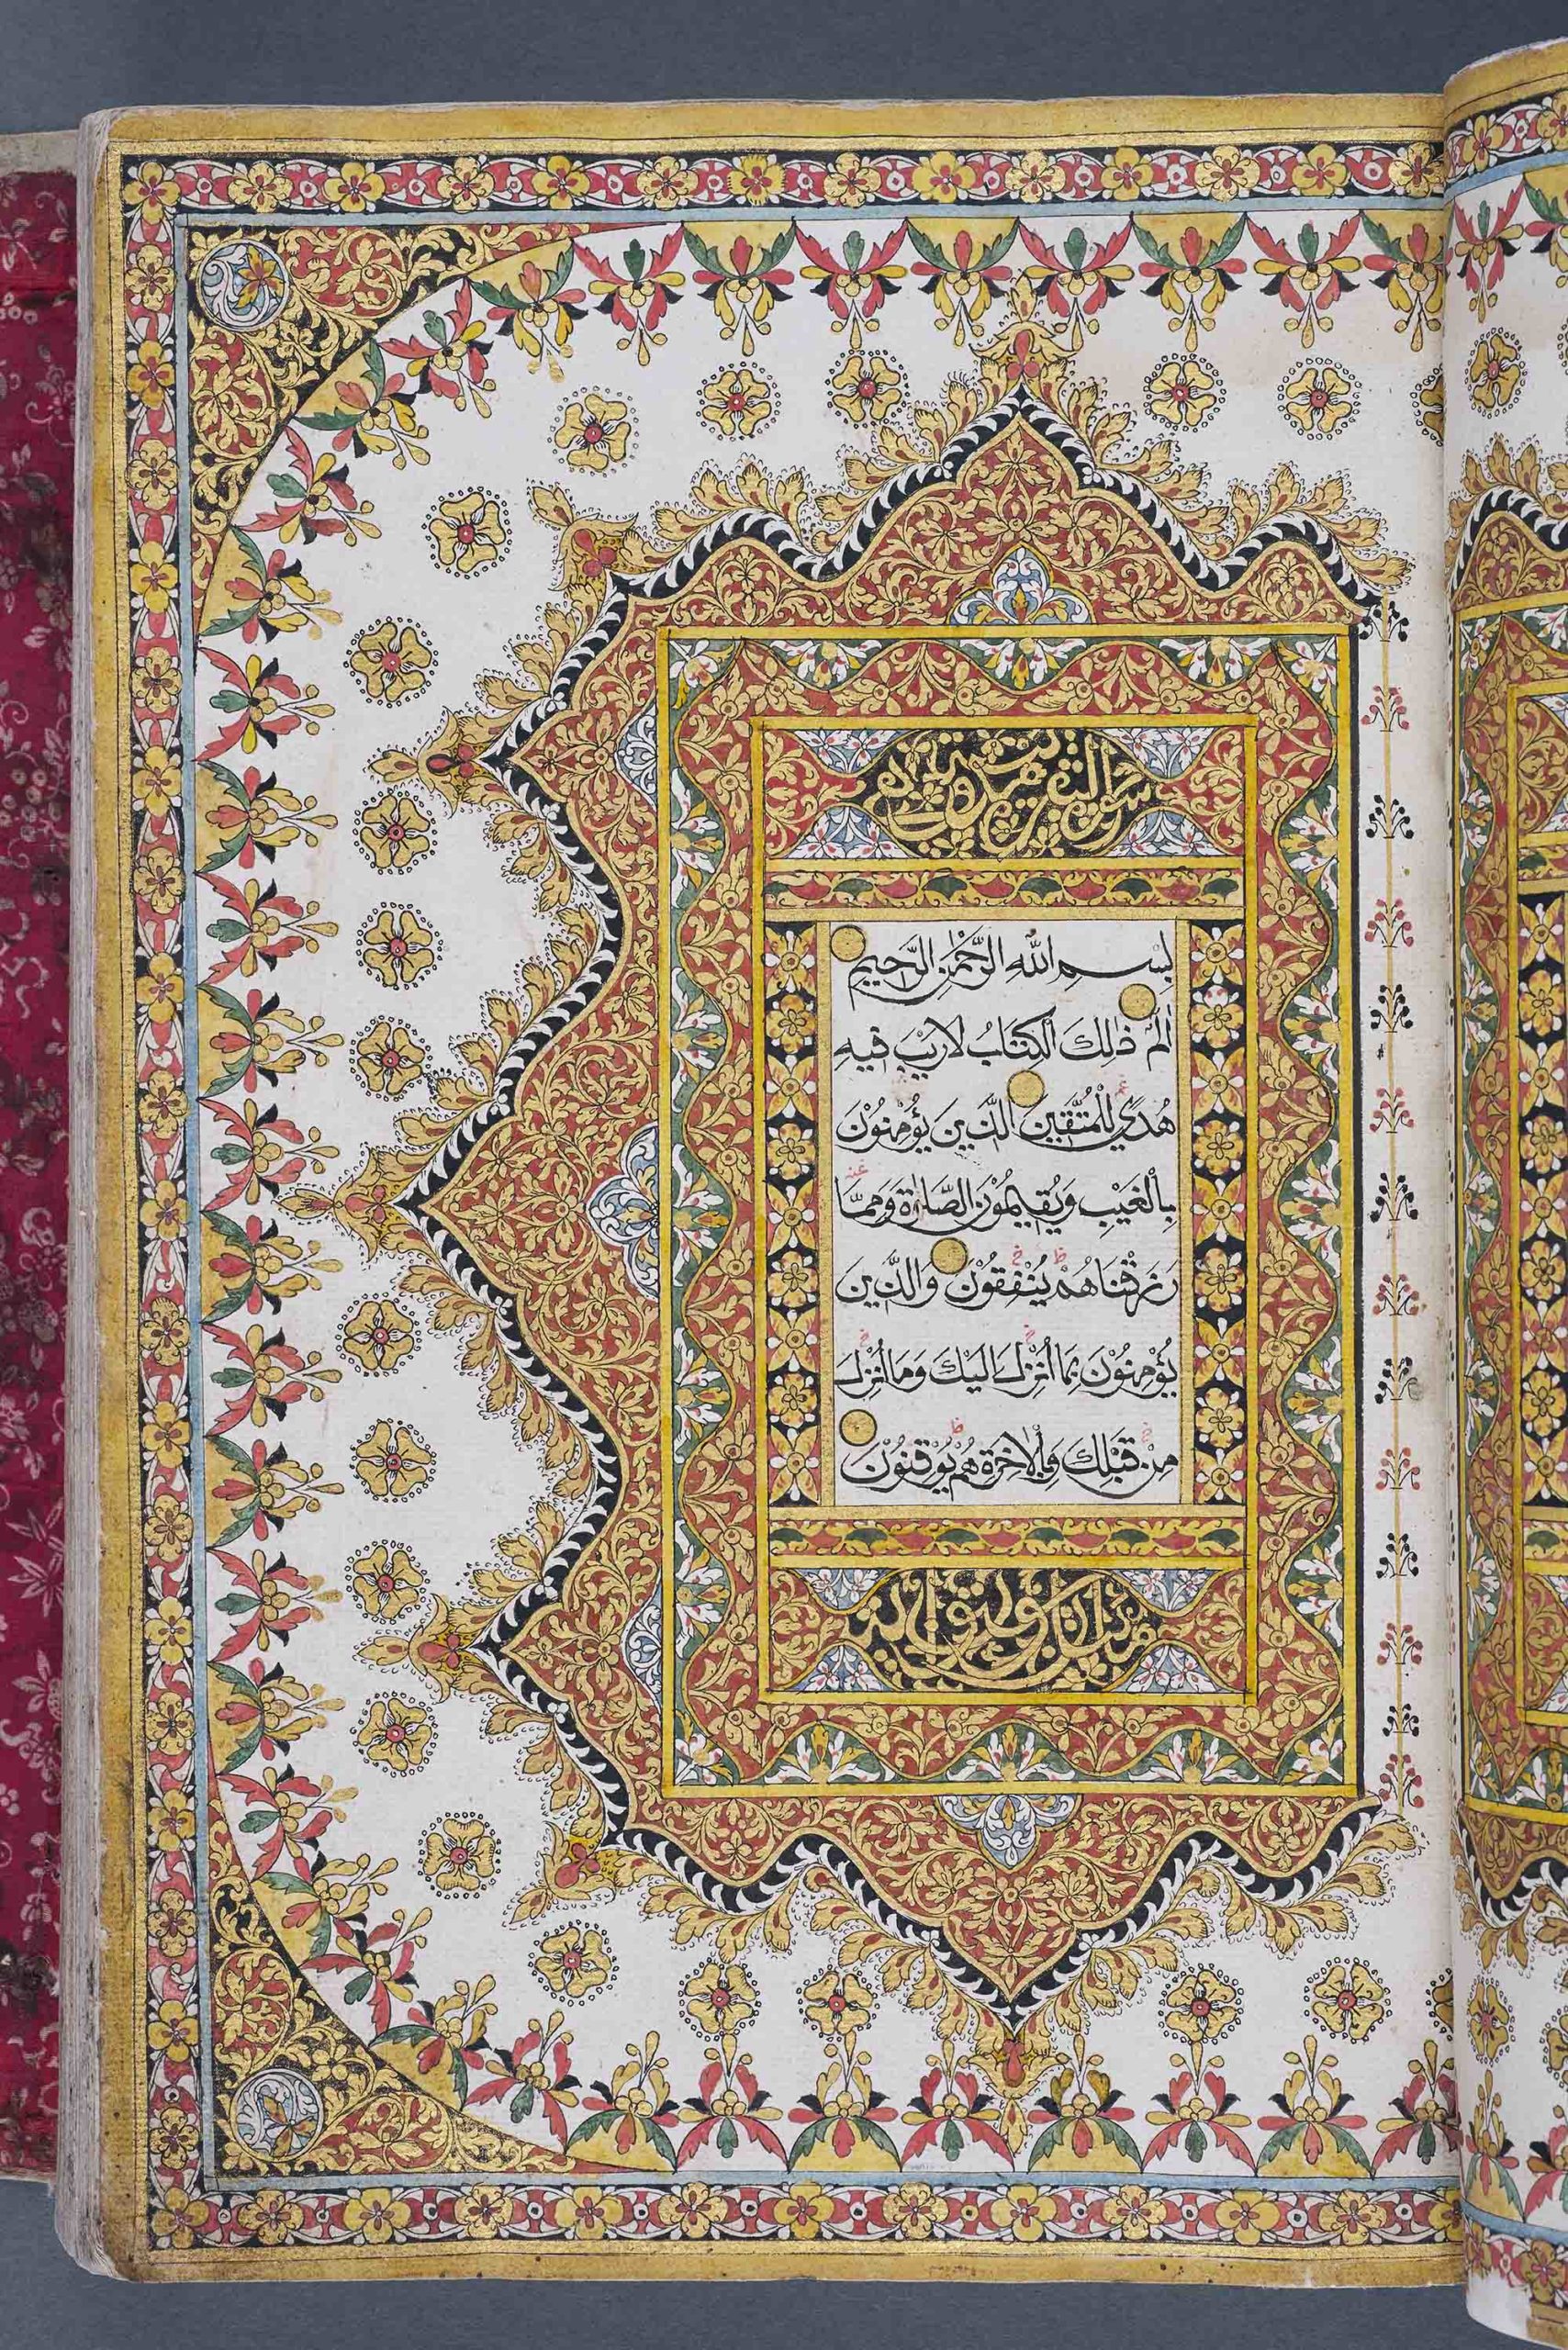 سورة البقرة
بِسْمِ اللّٰهِ الرَّحْمٰنِ الرَّحِيمِ
الٓمّٓ ذٰلِكَ الْكِتَابُ لَا رَيْبَ فِيهِ
هُدًي لِّلْمُتَّقِينَ الَّذِينَ يُؤْمِنُوْنَ
بِالْغَيْبِ وَيُقِيمُوْنَ الصَّلٰوةَ وَمِمَّا
رَزَقْنَاهُمْ يُنْفِقُوْنَ وَالَّذِينَ
يُؤْمِنُوْنَ بِمَا اُنْزِلَ اِلَيْكَ وَمَا اُنْزِلَ
مِنْ قَبْلِكَ وَبِالْاٰخِرَةِ هُمْ يُوْقِنُوْنَ